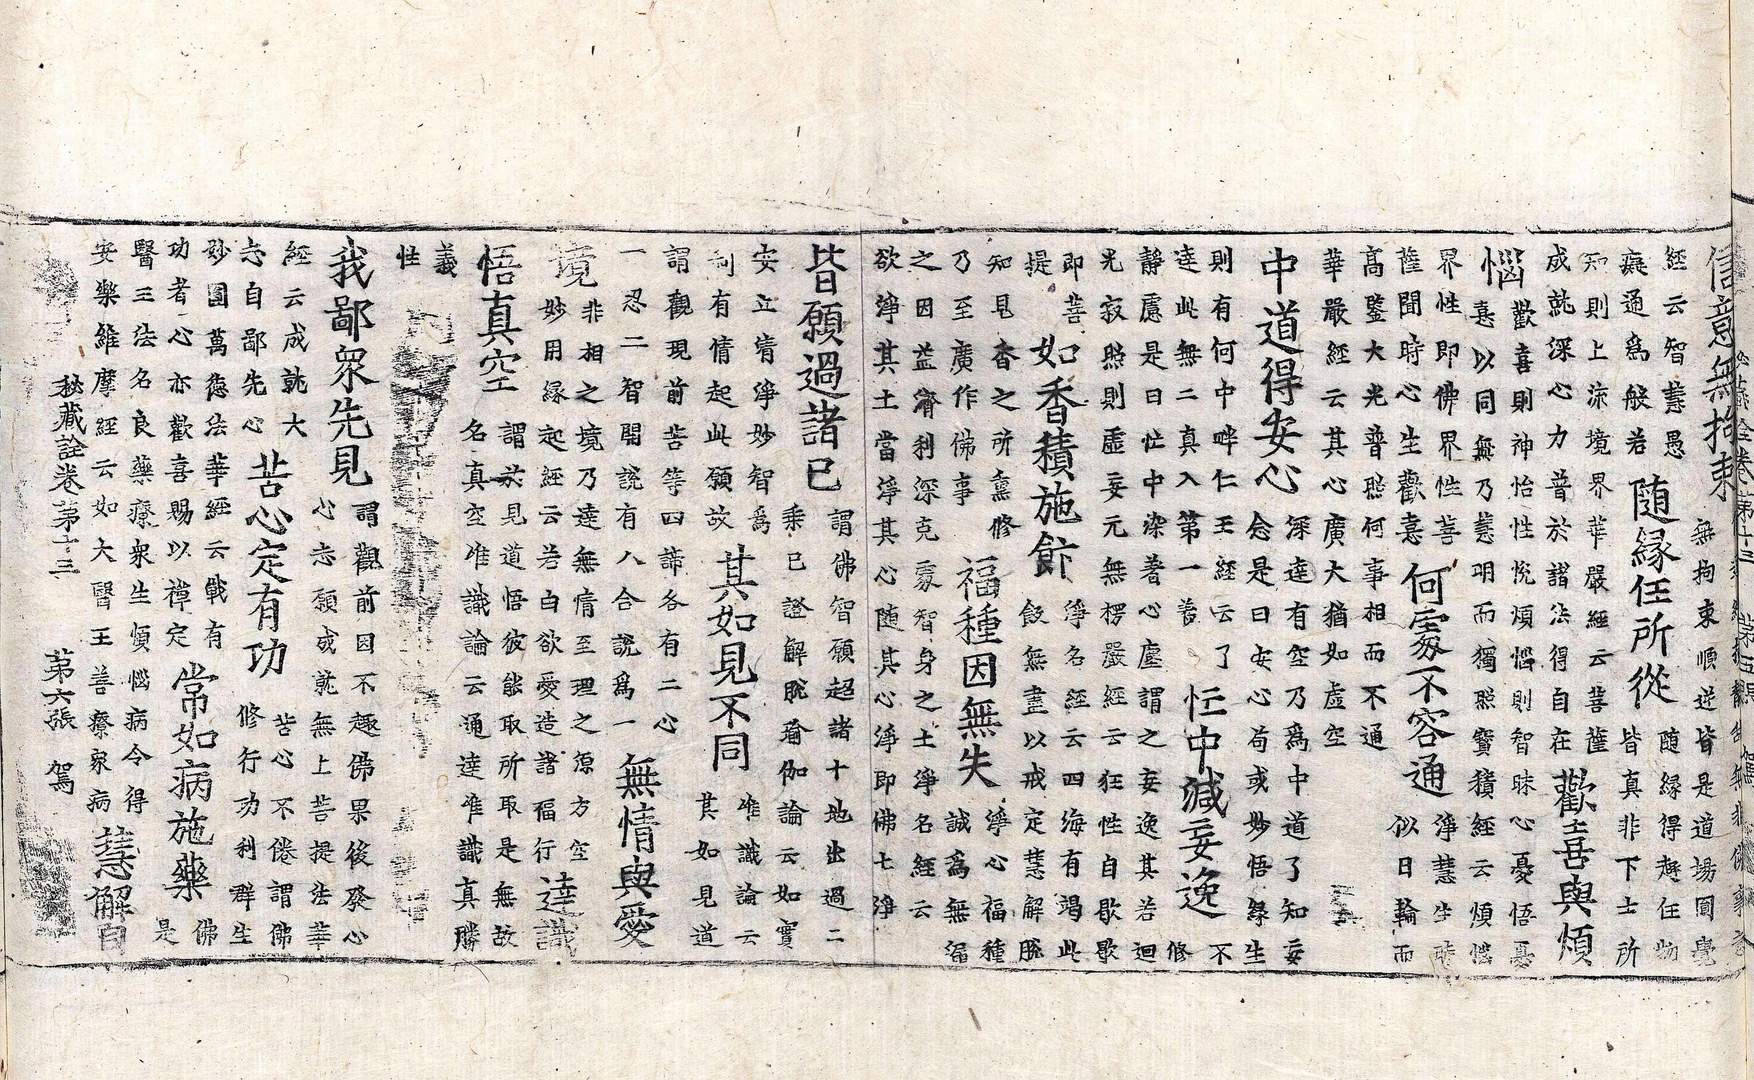 信意無拘束 無拘束順逆皆是道場圓覺
經云智慧愚癡通為般若 随縁任所從 随縁得趣任物皆真非下士所
知則上士境界華嚴經云菩薩成就深心力普於諸法得自在 歡喜與煩
惱 歡喜則神怡性悅煩惱則智昧心憂悟憂憙以同無乃慧明而獨照寶積經云煩惱
界性即佛界性菩薩聞時心生歡憙 何處不容通 淨慧生時似日輪而
高鑒大光普照何事相而不通華嚴經云其心廣大猶如虛空
中道得安心 深達有空乃為中道了知妄念是曰安心苟或妙悟緣生
則有何中畔仁王經云了達此無二真入第一義 忙中減妄逸 不修
靜慮是曰忙中染著心塵謂之妄逸其若迴光寂照則虛妄元無楞嚴經云狂性自歇歇
即菩提 如香積施飰 淨名經云四海有渴此飯無盡以戒定慧解脫
知見香之所熏修乃至廣作佛事 福種因無失 淨心福種誠為無漏
之因益濟利深克處智身之土淨名經云欲淨其土當淨其心随其心淨即佛土淨
皆願過諸已 謂佛智願超諸十地出過二乘已證解脫瑜伽論云如實
安立清淨妙智為利有情起此願故 其如見不同 唯識論云其如見道
謂觀現前苦等四諦各有二心一忍二智開說有八合說為一 無情與愛
境 非相之境乃達無情至理之源方空妙用緣起經云若白欲愛造諸福行 達識
悟真空 謂於見道悟彼能取所取是無故名真空唯識論云通達唯識真勝
義性
我鄙衆先見 謂觀前因不趣佛果後發心心忘願成就無上菩提法華
經云成就大志自鄙先心 苦心定有功 苦心不倦謂佛修行功利群生
妙圓萬德法華經云戰有功者心亦歡喜賜以禪定 常如病施藥 佛是
醫三法名良藥療衆生煩惱病令得安樂維摩經云如大醫王善療衆病 慧解自
秘藏詮卷第十三 第六張 駕